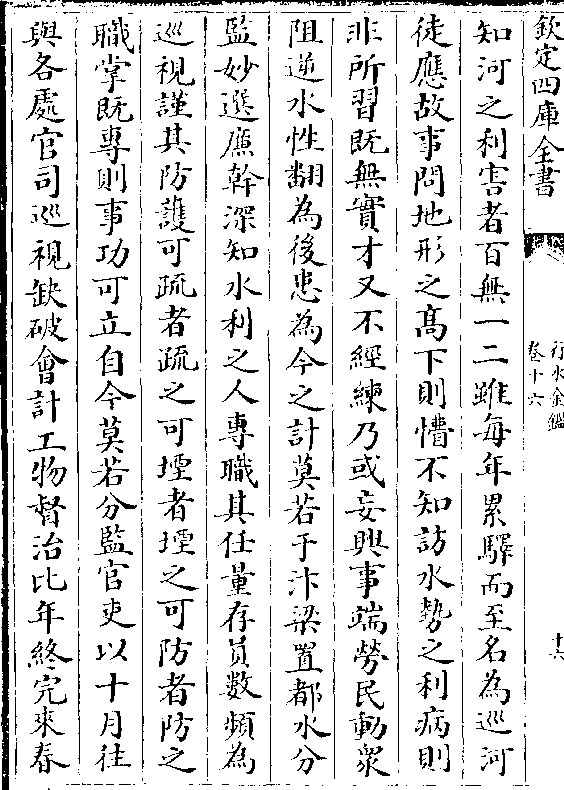 欽定四庫全書
行水金鑑
卷十六
十六
知河之利害者百無一二雖每年累驛而至名為巡河
徒應故事問地形之髙下則懵不知訪水勢之利病則
非所習既無實才又不經練乃或妄興事端勞民動衆
阻逆水性翻為後患為今之計莫若于汴梁置都水分
監妙選廉幹深知水利之人專職其任量存員數頻為
巡視謹其防䕶可疏者疏之可堙者堙之可防者防之
職掌既專則事功可立自今莫若分監官吏以十月往
與各處官司巡視缺破會計工物督治比年終完來春